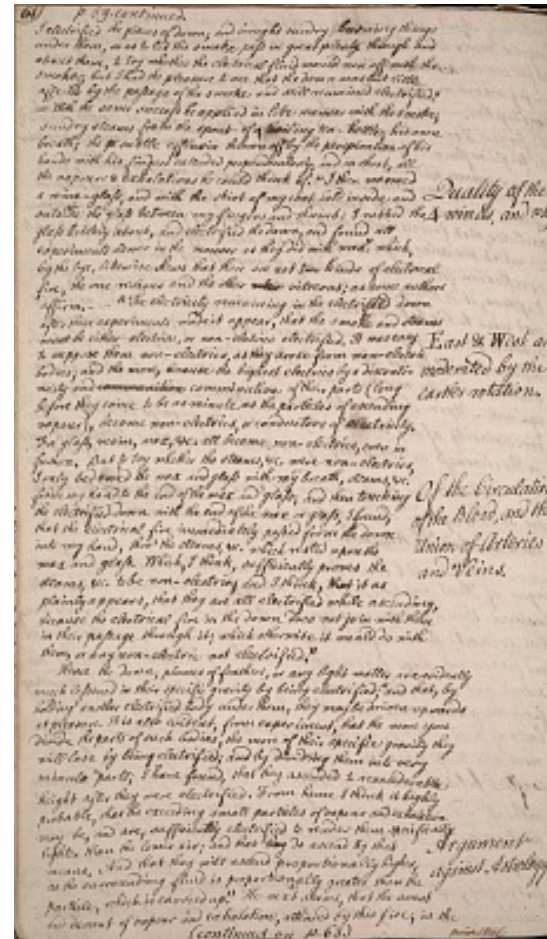 64) p. 63. continued.
I electrified the pieces of down, and brought sundry burning things
under them, so as to let the smoke pass in great plenty through and
about them, to try whether the electrical fluid would run off with the
smoke; but I had the pleasure to see that the down was but little
affected by the passage of the smoke and still remained electrified."
— With the same success he applied in like manner with the smoke,
sundry steams from the spout of a boiling tea-kettle, his own
breath; the subtile effluvia thrown off by the perspiration of his
hands with his fingers extended perpendicularly, and in short, all
the vapours & exhalations he could think of. "I then warmed
a wine-glass, and with the skirt of my coat both inside and
outside the glass between my fingers and thumb; I rubbed the
glass briskly about, and electrified the down, and found all
experiments answer in the manner as they did with wax; which,
by the bye, likewise shews that there are not two kinds of electrical
fire, the one resinous and the other vitreous; as some authors
affirm. — "The electricity remaining in the electrified down
after these experiments made it appear, that the smoke and steams
must be either electrics, or non-electrics electrified. It was easy
to suppose them non-electrics, as they arose from non-electric
bodies; and the more, because the highest electrics by a discontin-
uity and comminution of their parts (long
before they come to be as minute as the particles of ascending
vapour), become non-electrics, or conductors of electricity.
For glass, resin, wax, &c. all become non-electrics, even in
fusion. But to try whether the steams, &c. were non-electrics,
I only bedewed the wax and glass with my breath, steams, &c.
from my hand to the end of the wax and glass, and then touching
the electrified down with the end of the wax or glass, I found,
that the electrical fire immediately passed from the down
into my hand, thro' the steams, &c. which rested upon the
wax and glass. Which, I think, sufficiently proves the
steams, &c. to be non-electrics; and I think, that it as
plainly appears, that they are all electrified while ascending,
because the electrical fire in the down does not join with them
in their passage through it; which otherwise it would do with
them, or any non-electric not electrified."
Hence the down, plumes of feathers, or any light matter are evidently
much lessened in their specific gravity by being electrified; and that, by
holding another electrified body under them, they may be driven upwards
at pleasure. It is also evident, from experiment, that the more you
divide the parts of such bodies, the more of their specific gravity they
will lose by being electrified; and by dividing them into very
minute parts, I have found, that they ascended to a considerable
height after they were electrified. From hence I think it highly
probable, that the exceeding small particles of vapour and exhalation
may be, and are, sufficiently electrified to render them specifically
lighter than the lower air; and that they do ascend by that
means. And that they will ascend proportionally higher,
as the surrounding fluid is proportionally greater than the
particle, which is carried up." He next shews, that the
ascent of vapour and exhalation, by this fire, in the
(continued on p. 65.)
Quality of the
4 winds, and
East & West
moderated by the
earths rotation.
Of the Circulation
of the Blood, and the
Union of Arteries
and Veins.
Argument
against Astrology